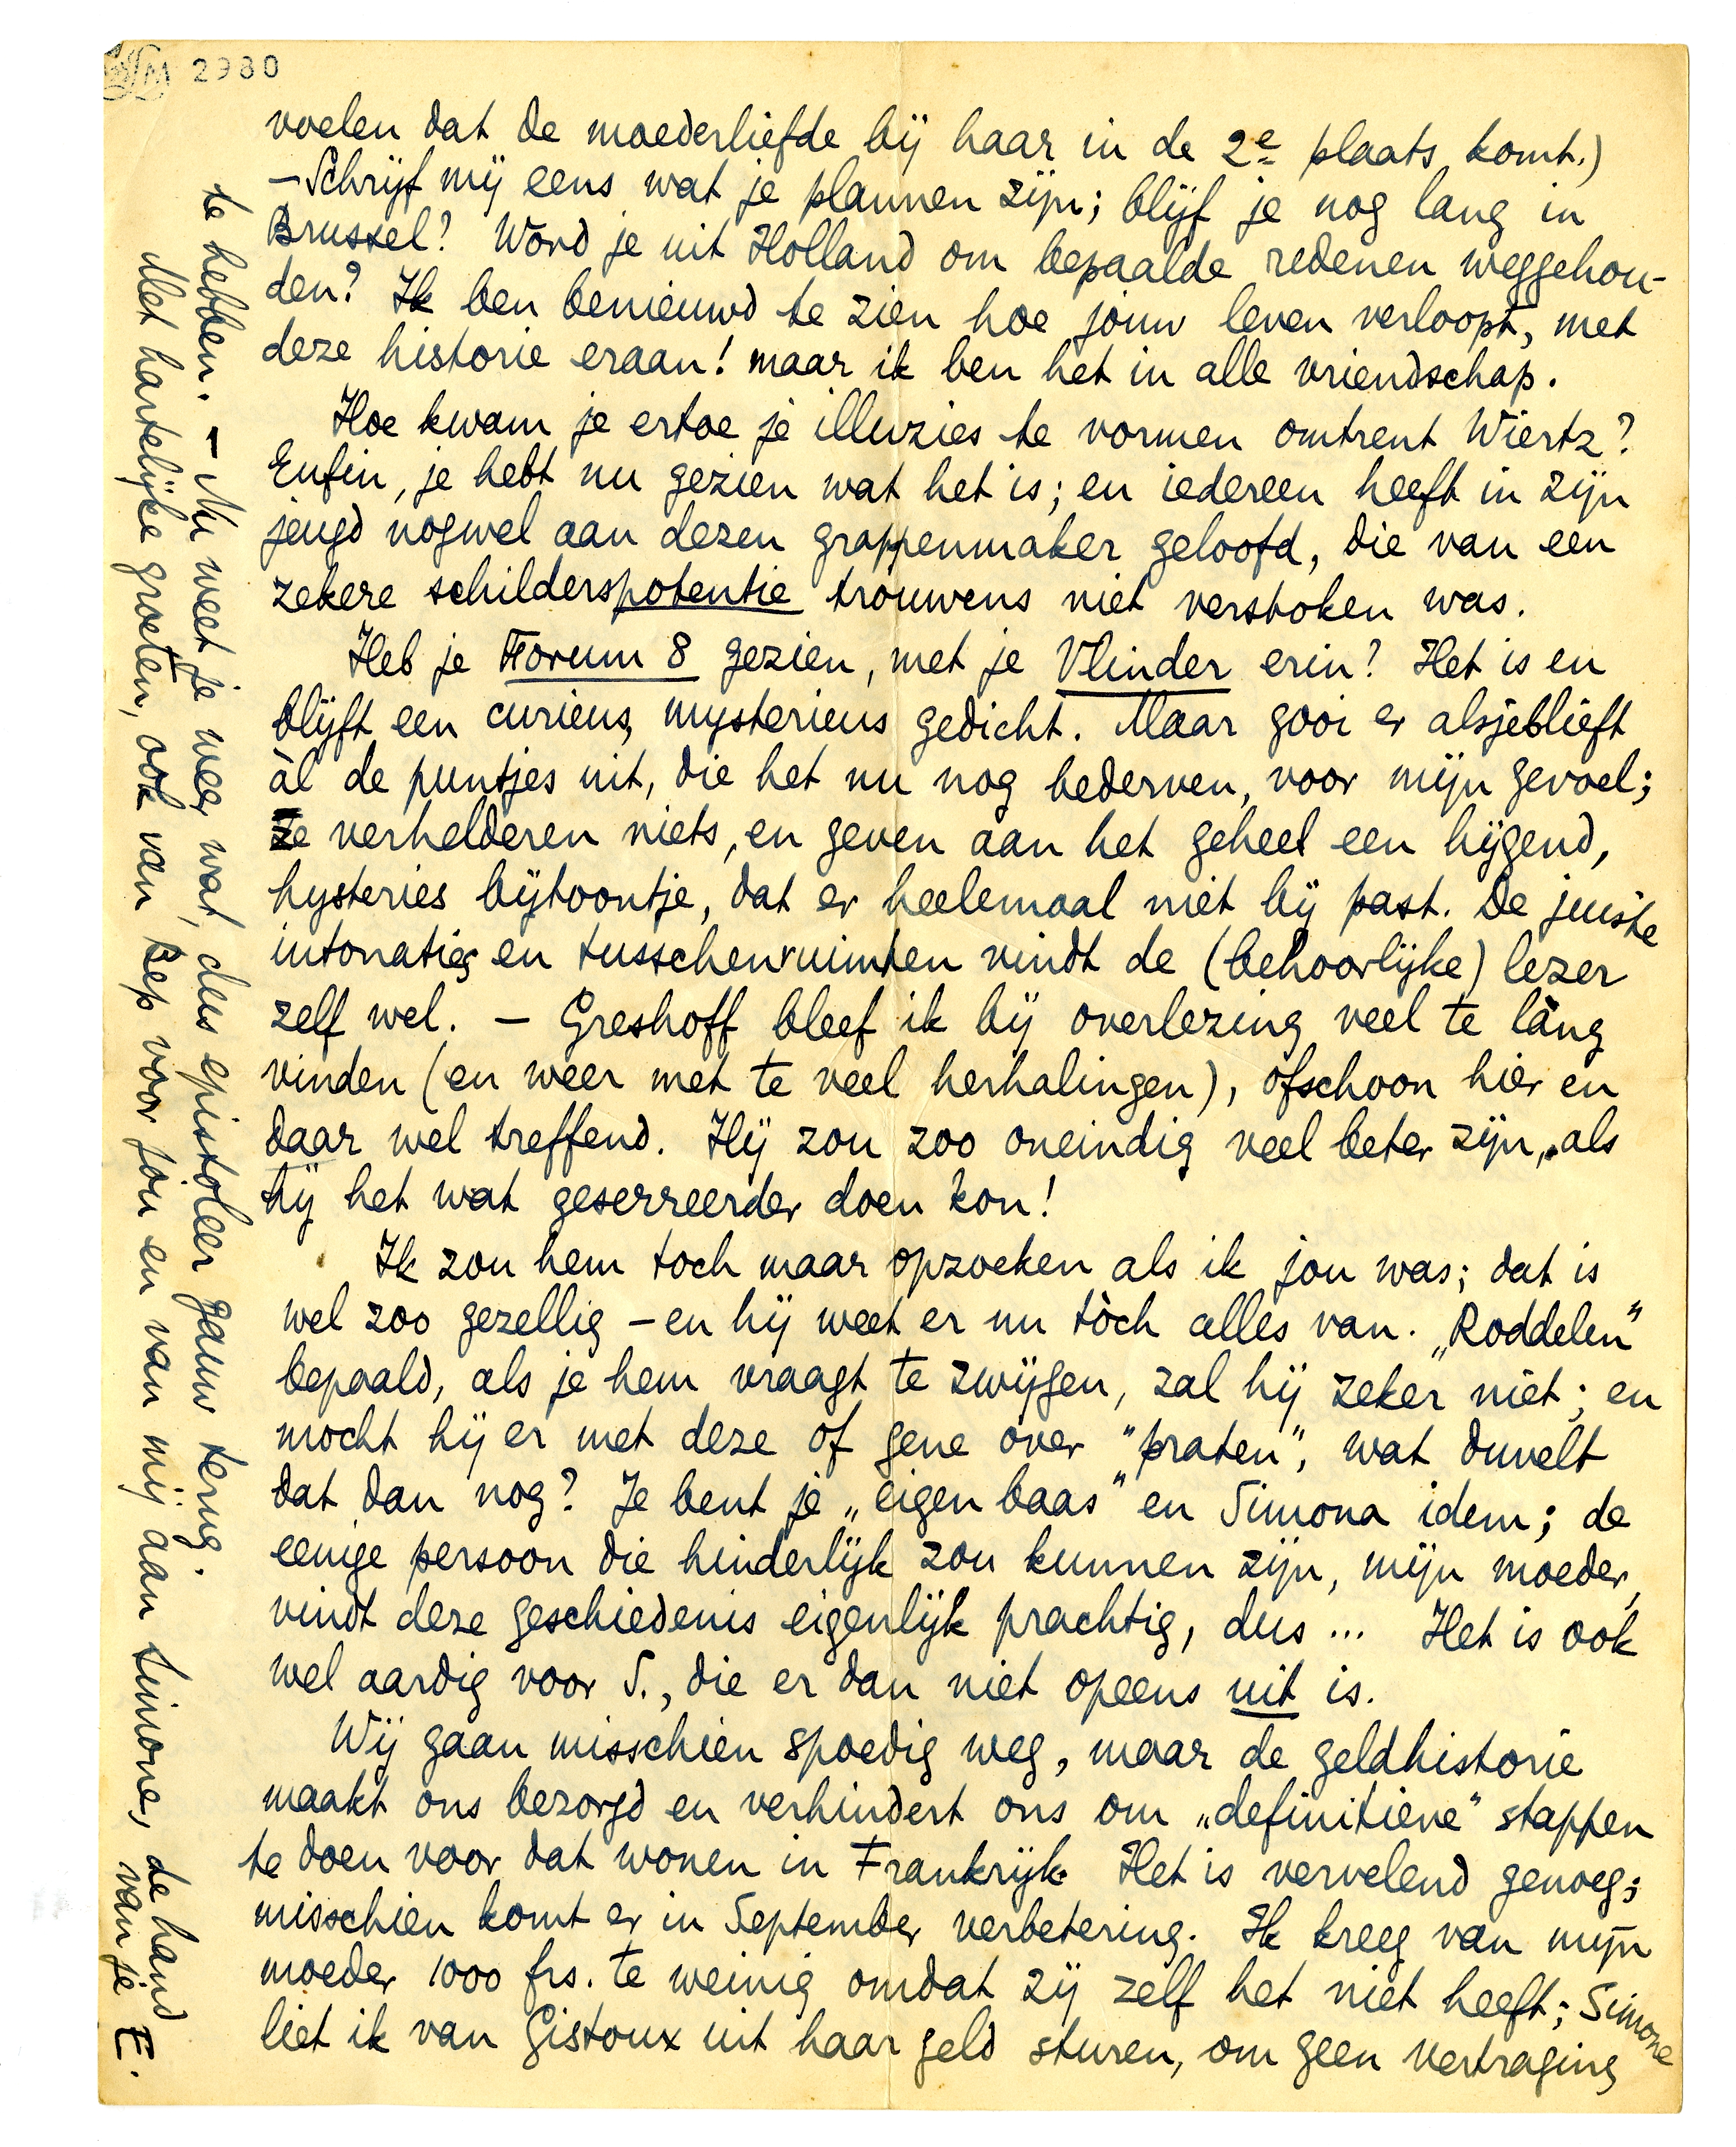 2980
voelen dat de moederliefde bij haar in de 2e plaats komt.)
– Schrijf mij eens wat je plannen zijn; blijf je nog lang in
Brussel? Word je uit Holland om bepaalde redenen weggehou-
den? Ik ben benieuwd te zien hoe jouw leven verloopt, met
deze historie eraan! maar ik ben het in alle vriendschap.
Hoe kwam je ertoe je illuzies te vormen omtrent Wiertz?
Enfin, je hebt nu gezien wat het is; en iedereen heeft in zijn
jeugd nogwel aan dezen grappenmaker geloofd, die van een
zekere schilderspotentie trouwens niet verstoken was.
Heb je Forum 8 gezien, met je Vlinder erin? Het is en
blijft een curieus, mysterieus gedicht. Maar gooi er alsjeblieft
àl de puntjes uit, die het nu nog bederven, voor mijn gevoel;
ze verhelderen niets, en geven aan het geheel een hijgend,
hysteries bijtoontje, dat er heelemaal niet bij past. De juiste
intonaties en tusschenruimten vindt de (behoorlijke) lezer
zelf wel. – Greshoff bleef ik bij overlezing veel te lang
vinden (en weer met te veel herhalingen), ofschoon hier en
daar wel treffend. Hij zou zoo oneindig veel beter zijn, als
hij het wat geserreerder doen kon!
Ik zou hem toch maar opzoeken als ik jou was; dat is
wel zoo gezellig – en hij weet er nu tòch alles van. „Roddelen”
bepaald, als je hem vraagt te zwijgen, zal hij zeker niet; en
mocht hij er met deze of gene over "praten", wat duvelt
dat dan nog? Je bent je „eigen baas” en Simona idem; de
eenige persoon die hinderlijk zou kunnen zijn, mijn moeder,
vindt deze geschiedenis eigenlijk prachtig, dus ... Het is ook
wel aardig voor S., die er dan niet opeens uit is.
Wij gaan misschien spoedig weg, maar de geldhistorie
maakt ons bezorgd en verhindert ons om „definitieve” stappen
te doen voor dat wonen in Frankrijk. Het is vervelend genoeg;
misschien komt er in September verbetering. Ik kreeg van mijn
moeder 1000 frs. te weinig omdat zij zelf het niet heeft; Simone
liet ik van Gistoux uit haar geld sturen, om geen vertraging
te hebben. – Nu weet je weer wat, dus epistoleer gauw terug.
Met hartelijke groeten, ook van Bep voor jou en van mij aan Simone, de hand
van je E.